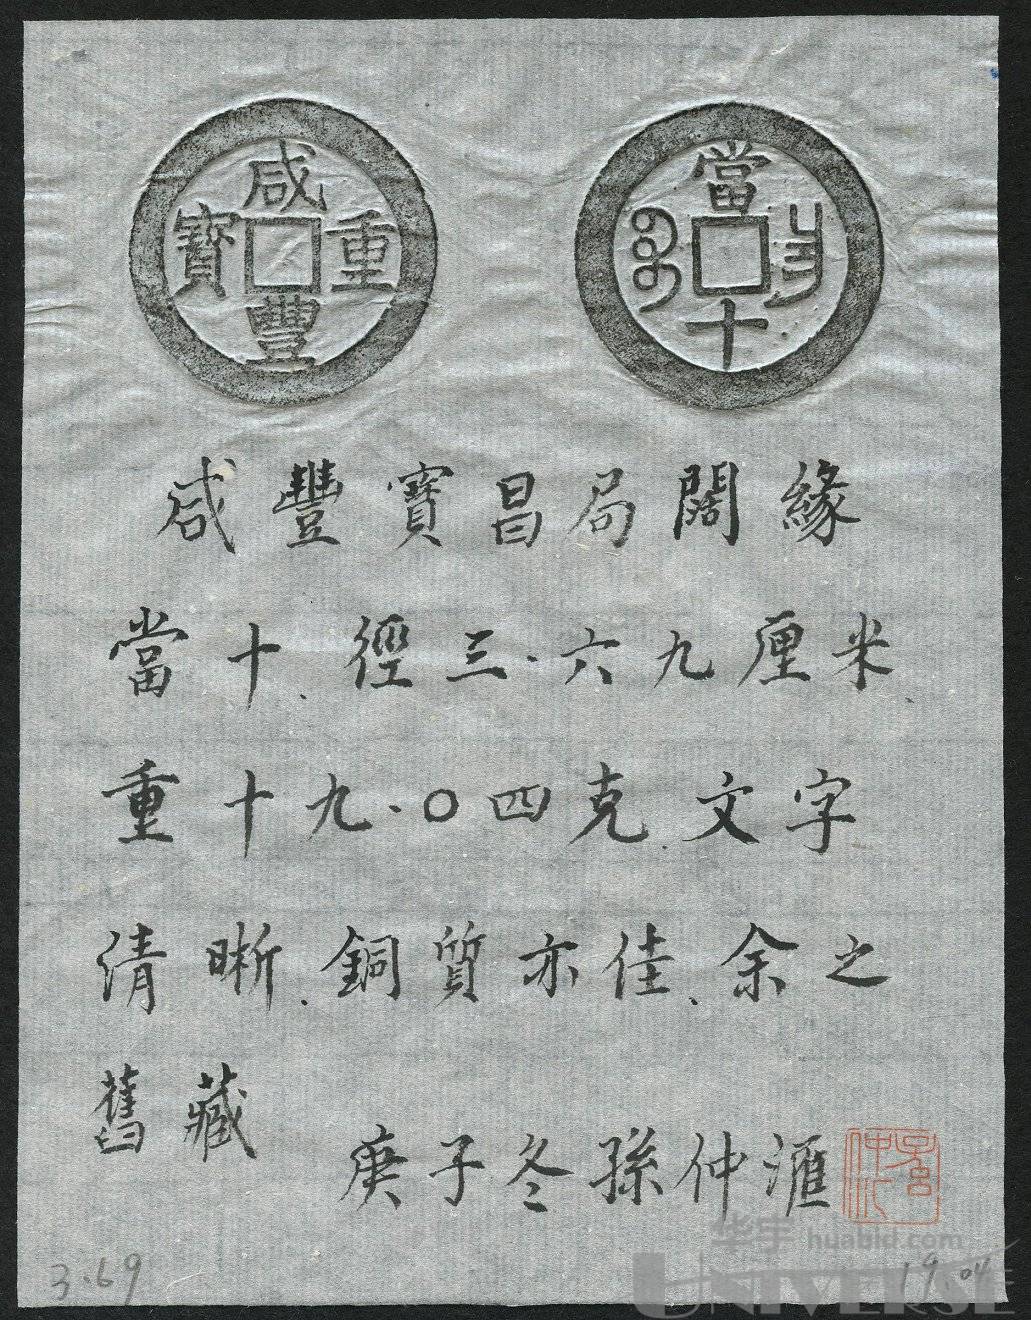 咸豐重寶
當十
咸豐寶昌局闊緣
當十、徑三·六九厘米、
重十九·〇四克、文字
清晰、銅質亦佳、余之
舊藏
庚子冬孫仲滙
3.69
19.04
华宇 huabid.com
UNIVERSE